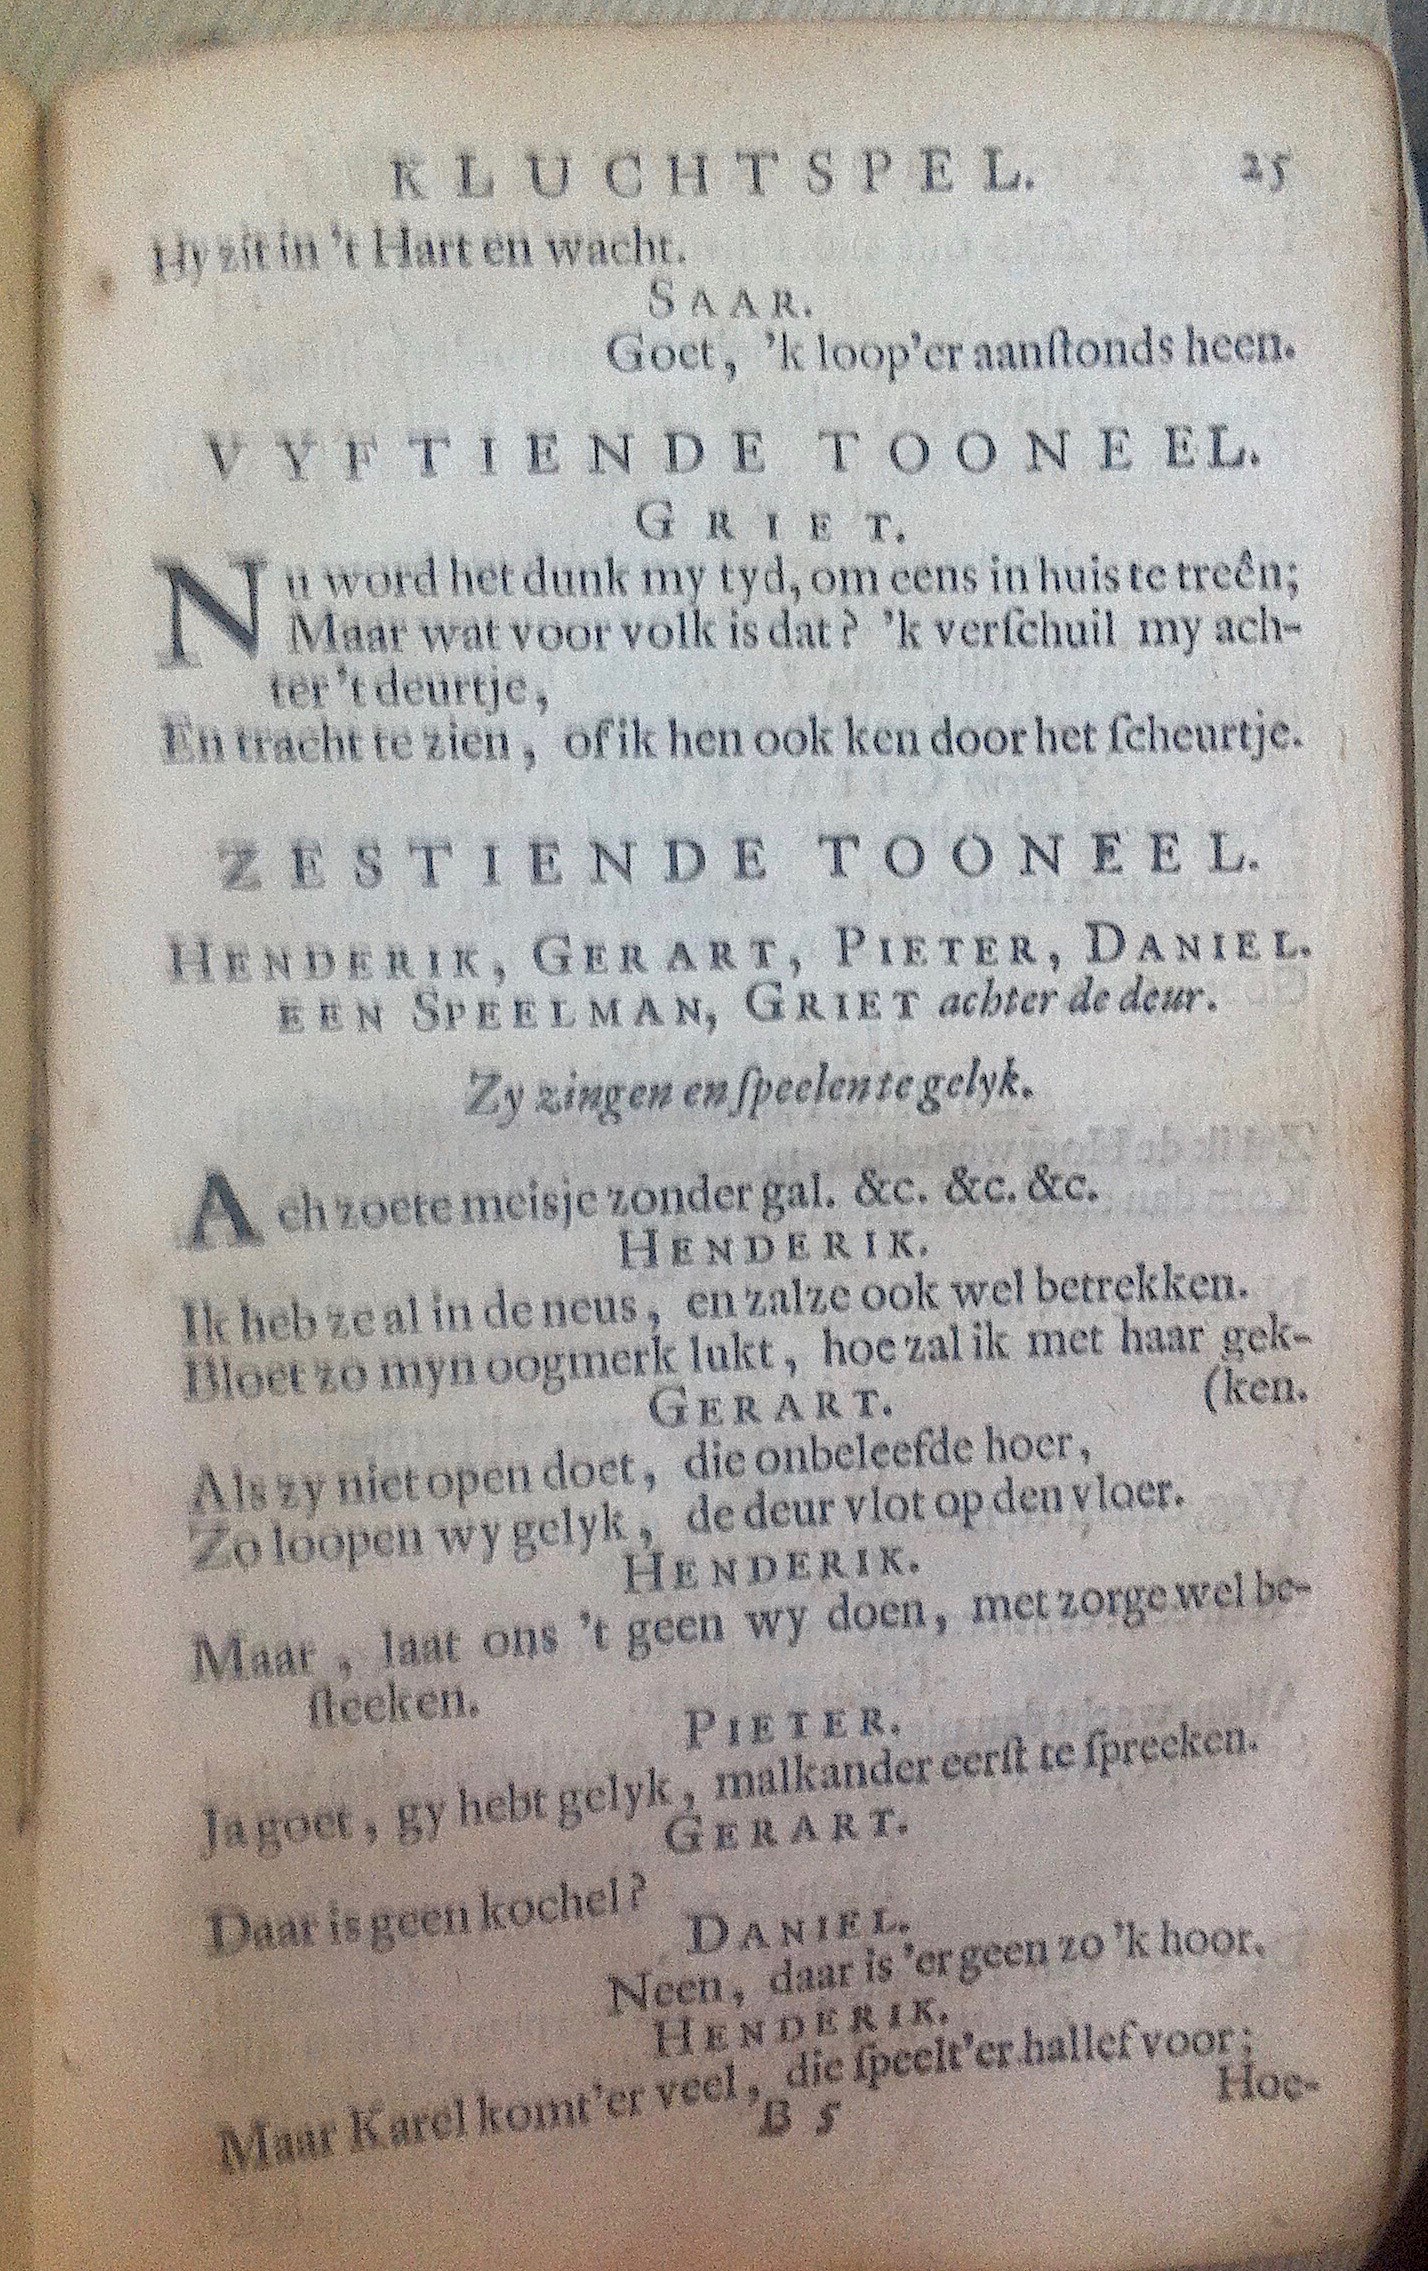 KLUCHTSPEL. 25
Hy zit in 't Hart en wacht.
SAAR.
Goet, 'k loop'er aanſtonds heen.
VYFTIENDE TOONEEL.
GRIET.
Nu word het dunk my tyd, om eens in huis te treên;
Maar wat voor volk is dat? 'k verſchuil my ach-
ter 't deurtje,
En tracht te zien, of ik hen ook ken door het ſcheurtje.
ZESTIENDE TOONEEL.
HENDERIK, GERART, PIETER, DANIEL.
EEN SPEELMAN, GRIET achter de deur.
Zy zingen en ſpeelen te gelyk.
Ach zoete meisje zonder gal. &c. &c. &c.
HENDERIK.
Ik heb ze al in de neus, en zalze ook wel betrekken.
Bloet zo myn oogmerk lukt, hoe zal ik met haar gek-
(ken.
GERART.
Als zy niet open doet, die onbeleefde hoer,
Zo loopen wy gelyk, de deur vlot op den vloer.
HENDERIK.
Maar, laat ons 't geen wy doen, met zorge wel be-
ſteeken.
PIETER.
Ja goet, gy hebt gelyk, malkander eerſt te ſpreeken.
GERART.
Daar is geen kochel?
DANIEL.
Neen, daar is 'er geen zo 'k hoor.
HENDERIK.
Maar Karel komt'er veel, die ſpeelt'er hallef voor;
B 5 Hoe-